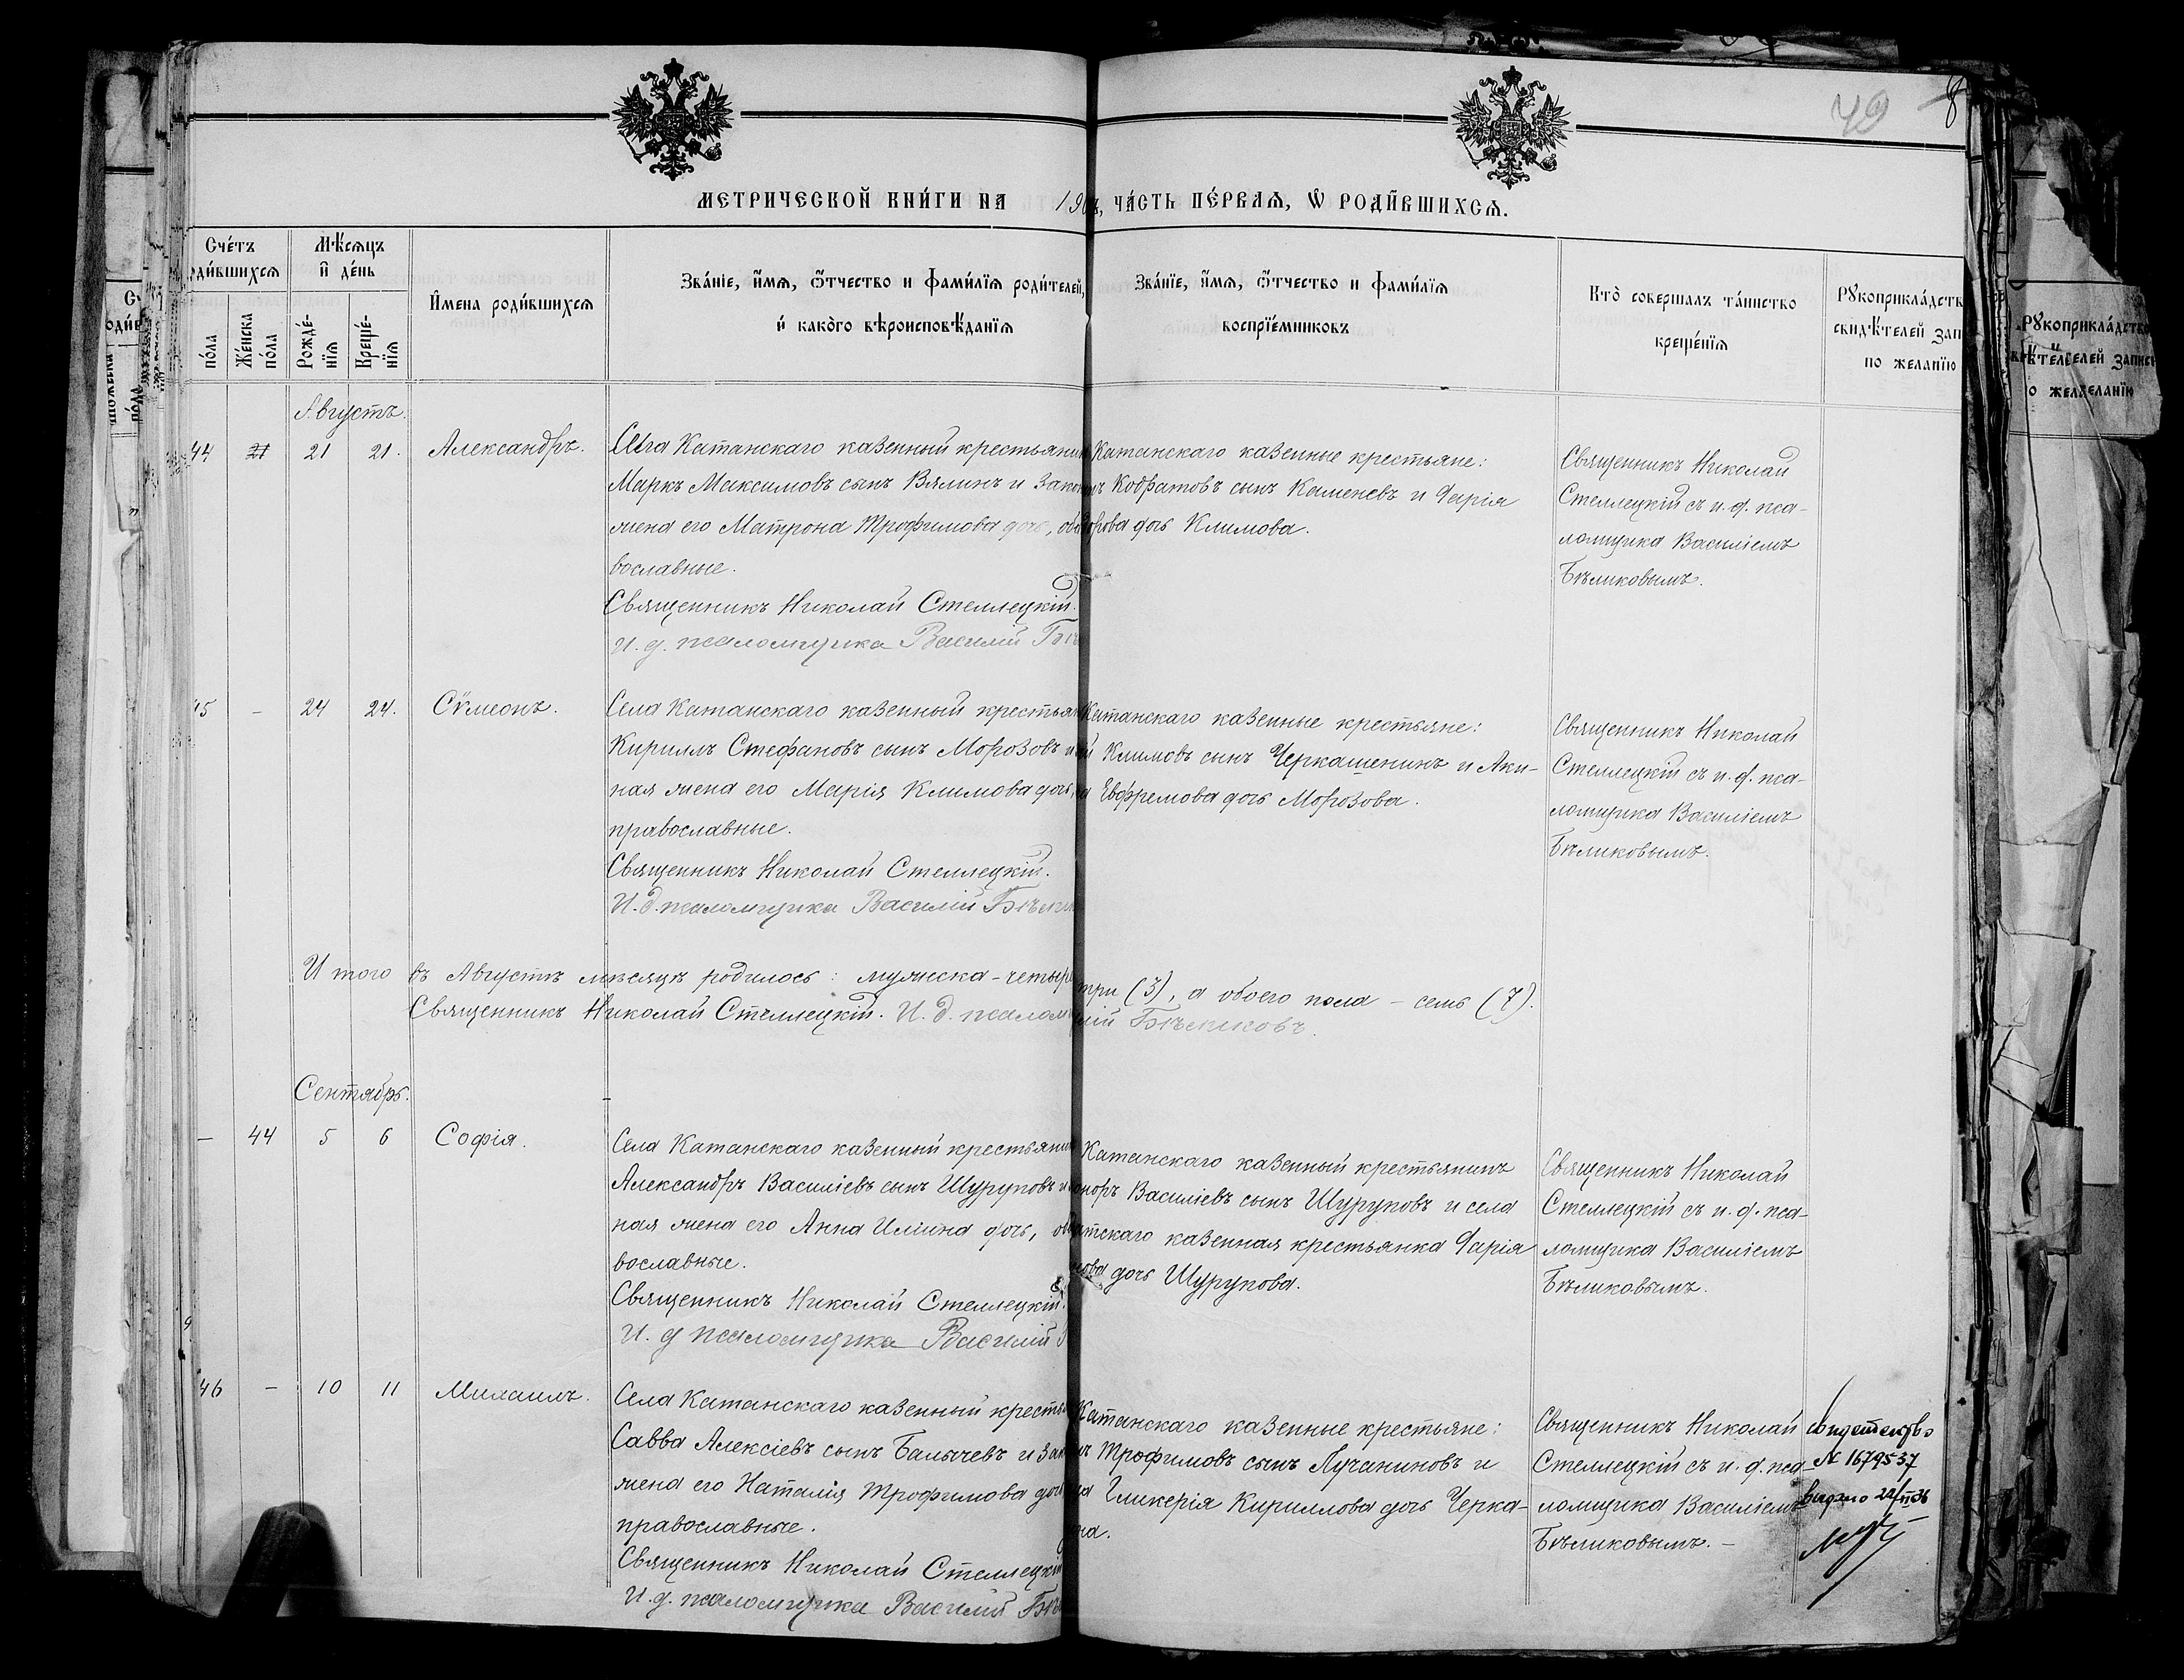 49
8
МЕТРИЧЕСКОЙ КНИ́ГИ НА 190 , ЧА́СТЬ ПЕ́РВАЯ, Ѡ РОДИ́ВШИХСЯ.
Сче́тъ
роди́вшихсѧ
Мѣ́сѧцъ
и҆ де́нь
по́ла
Же́нска
по́ла
Рожде́-
нїѧ
Креще́-
нїѧ
И҆мена роди́вшихсѧ
Зва́нїе, и҆́мѧ, ѻ҆́тчество и фами́лїѧ роди́телей,
и҆ како́го вѣроисповѣ́данїѧ
Зва́нїе, и҆́мѧ, ѻ҆́тчество и фами́лїѧ
воспрїе́мниковъ
Кто̀ соверша́лъ та́инство
креще́нїѧ
Рꙋкоприкла́дств
свидѣ́телей зап
по жела́нїю
Августъ.
44 21 21 21. Александръ.
Села Катанскаго казенный крестьянин
Маркъ Максимовъ сынъ Вялинъ и закон
жена его Матрона Трофимова дочь, оба
вославные.
Священникъ Николай Стеллецкій.
И. д. псаломщика Василій Бѣ
Катанскаго казенные крестьяне:
Кодратовъ сынъ Каменевъ и Дарія
рова дочь Климова.
Священникъ Николай
Стеллецкій съ и. д. пса-
ломщика Василіемъ
Бѣликовымъ.
45 - 24 24. Сѵмеонъ.
Села Катанскаго казенный крестьян
Кириллъ Стефановъ сынъ Морозовъ и
ная жена его Марія Климова дочь,
православные.
Священникъ Николай Стеллецкій.
И. д. псаломщика Василій Бѣли
Катанскаго казенные крестьяне:
Климовъ сынъ Черкашенинъ и Аки-
Евфремова дочь Морозова.
Священникъ Николай
Стеллецкій съ и. д. пса-
ломщика Василіемъ
Бѣликовымъ.
Итого въ Августѣ мѣсяцѣ родилось: мужеска - четыре три (3), а обоего пола - семь (7).
Священникъ Николай Стеллецкій. И. д. псалом лій Бѣликовъ.
Сентябрь.
- 44 5 6 Софія.
Села Катанскаго казенный крестьянин
Александръ Василіевъ сынъ Шуруповъ и
ная жена его Анна Иліина дочь, об
вославные.
Священникъ Николай Стеллецкій.
И. д псаломщика Василій
Катанскаго казенный крестьянинъ
Василіевъ сынъ Шуруповъ и села
атскаго казенная крестьянка Дарія
ова дочь Шурупова.
Священникъ Николай
Стеллецкій съ и. д. пса-
ломщика Василіемъ
Бѣликовымъ.
46 - 10 11 Михаилъ.
Села Катанскаго казенный кресть
Савва Алексіевъ сынъ Балычевъ и зак
жена его Наталія Трофимова доч
православные.
Священникъ Николай Стеллецкій
И. д. псаломщика Василій Бѣ
Катанскаго казенные крестьяне:
Трофимовъ сынъ Лучаниновъ и
Гликерія Кириллова дочь Черка-
на.
Священникъ Николай
Стеллецкій съ и. д. пса-
ломщика Василіемъ
Бѣликовымъ. -
Свидетельство
№ 1679537
выдано 22/II 36